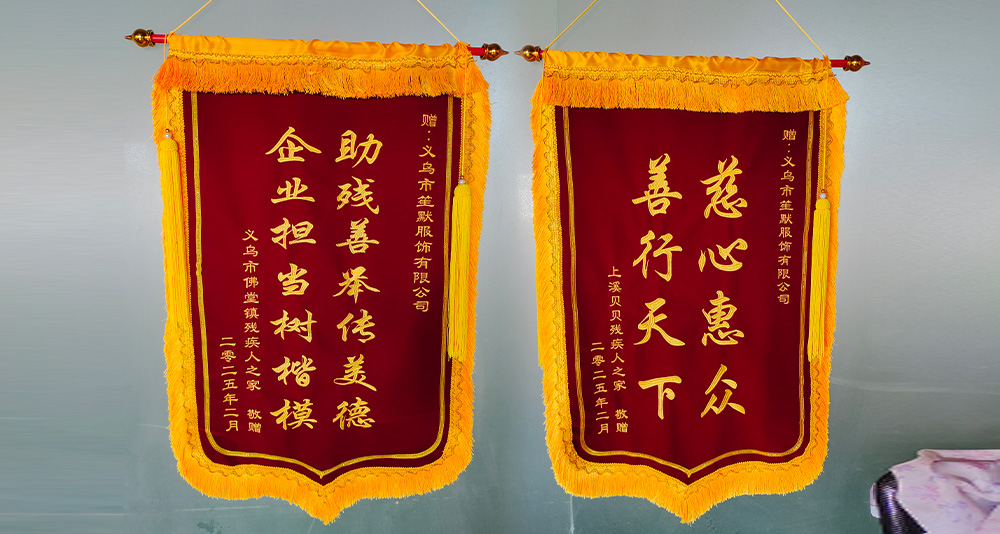 赠：义乌市笙默服饰有限公司
助残善举传美德
企业担当树楷模
义乌市佛堂镇残疾人之家 敬赠
二零二五年二月
赠：义乌市笙默服饰有限公司
慈心惠众
善行天下
上溪贝贝残疾人之家 敬赠
二零二五年二月